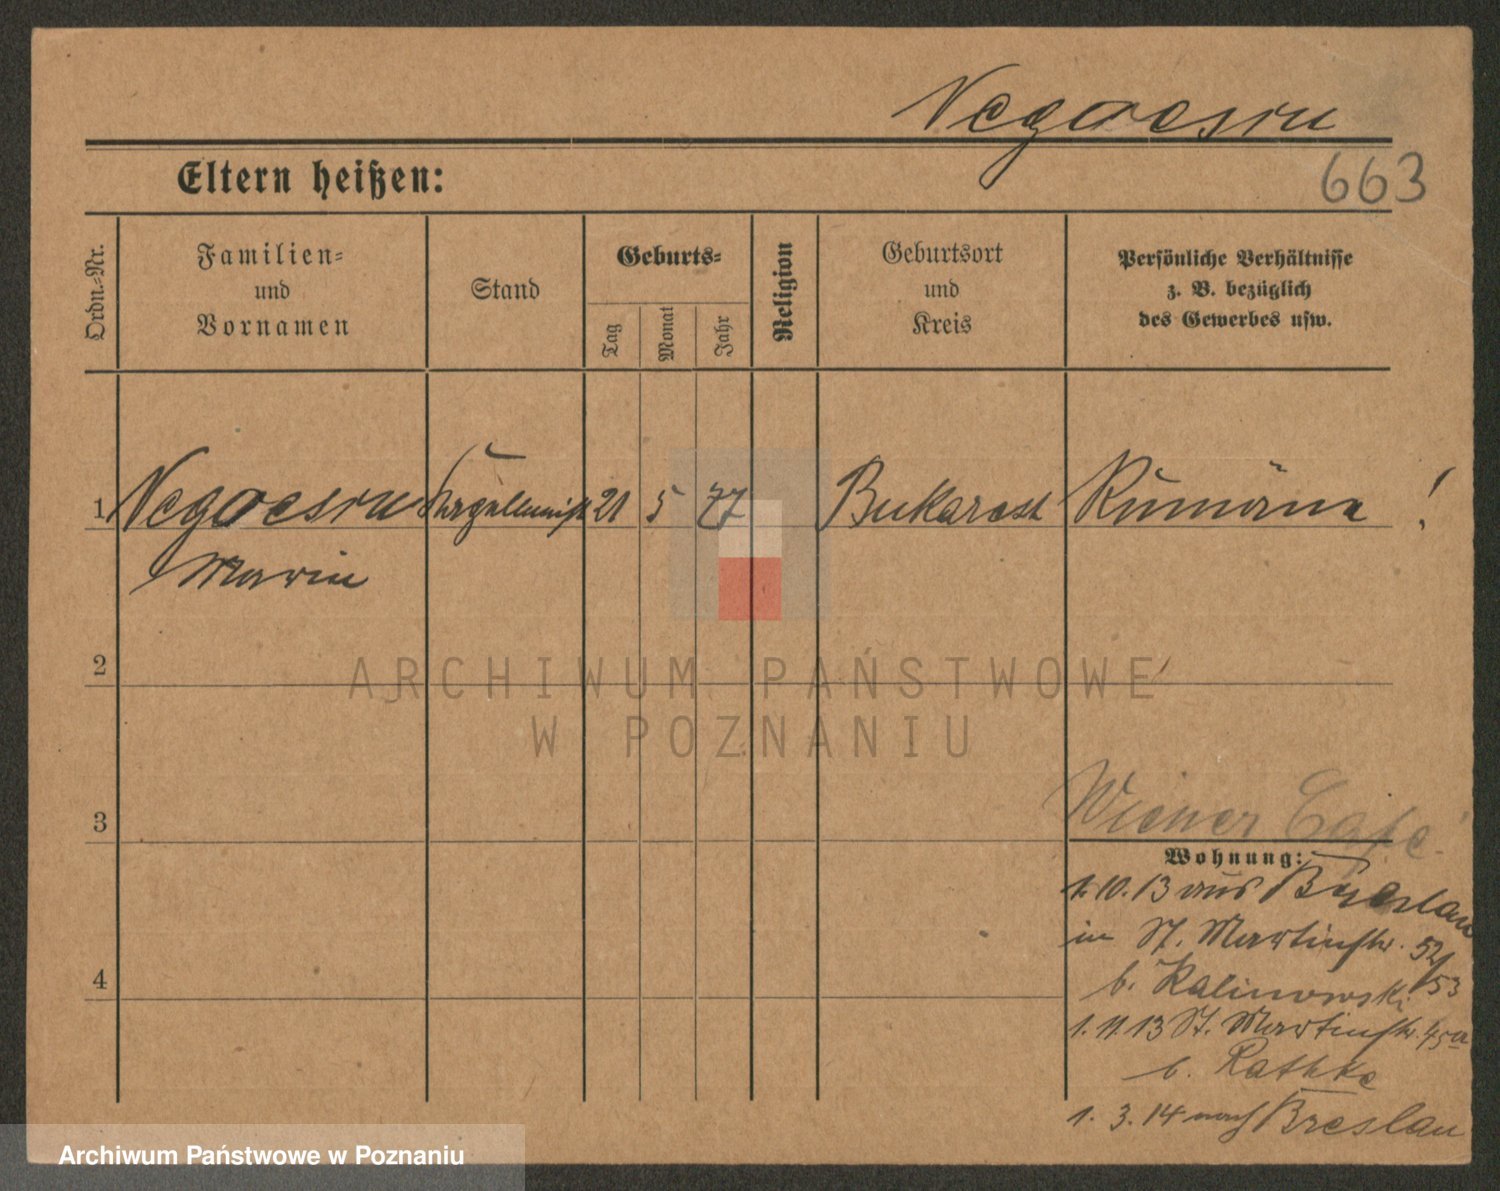 Negoesru
663
Eltern heißen:
Ordn.-Nr.
Familien=
und
Vornamen
Stand
Geburts=
Tag
Monat
Jahr
Religion
Geburtsort
und
Kreis
Persönliche Verhältnisse
z. B. bezüglich
des Gewerbes usw.
1 Negoesru 21 5 77 Bukarest Rumäne !
Marin
2
ARCHIWUM PAŃSTWOWE
W POZNANIU
3
Wiener Café
Wohnung:
1.10.13 aus Breslau
in St. Martinstr. 52/53
b. Kalinowski
1.11.13 St. Martinstr. 45a
b. Rathke
4
1. 3. 14 nach Breslau
Archiwum Państwowe w Poznaniu